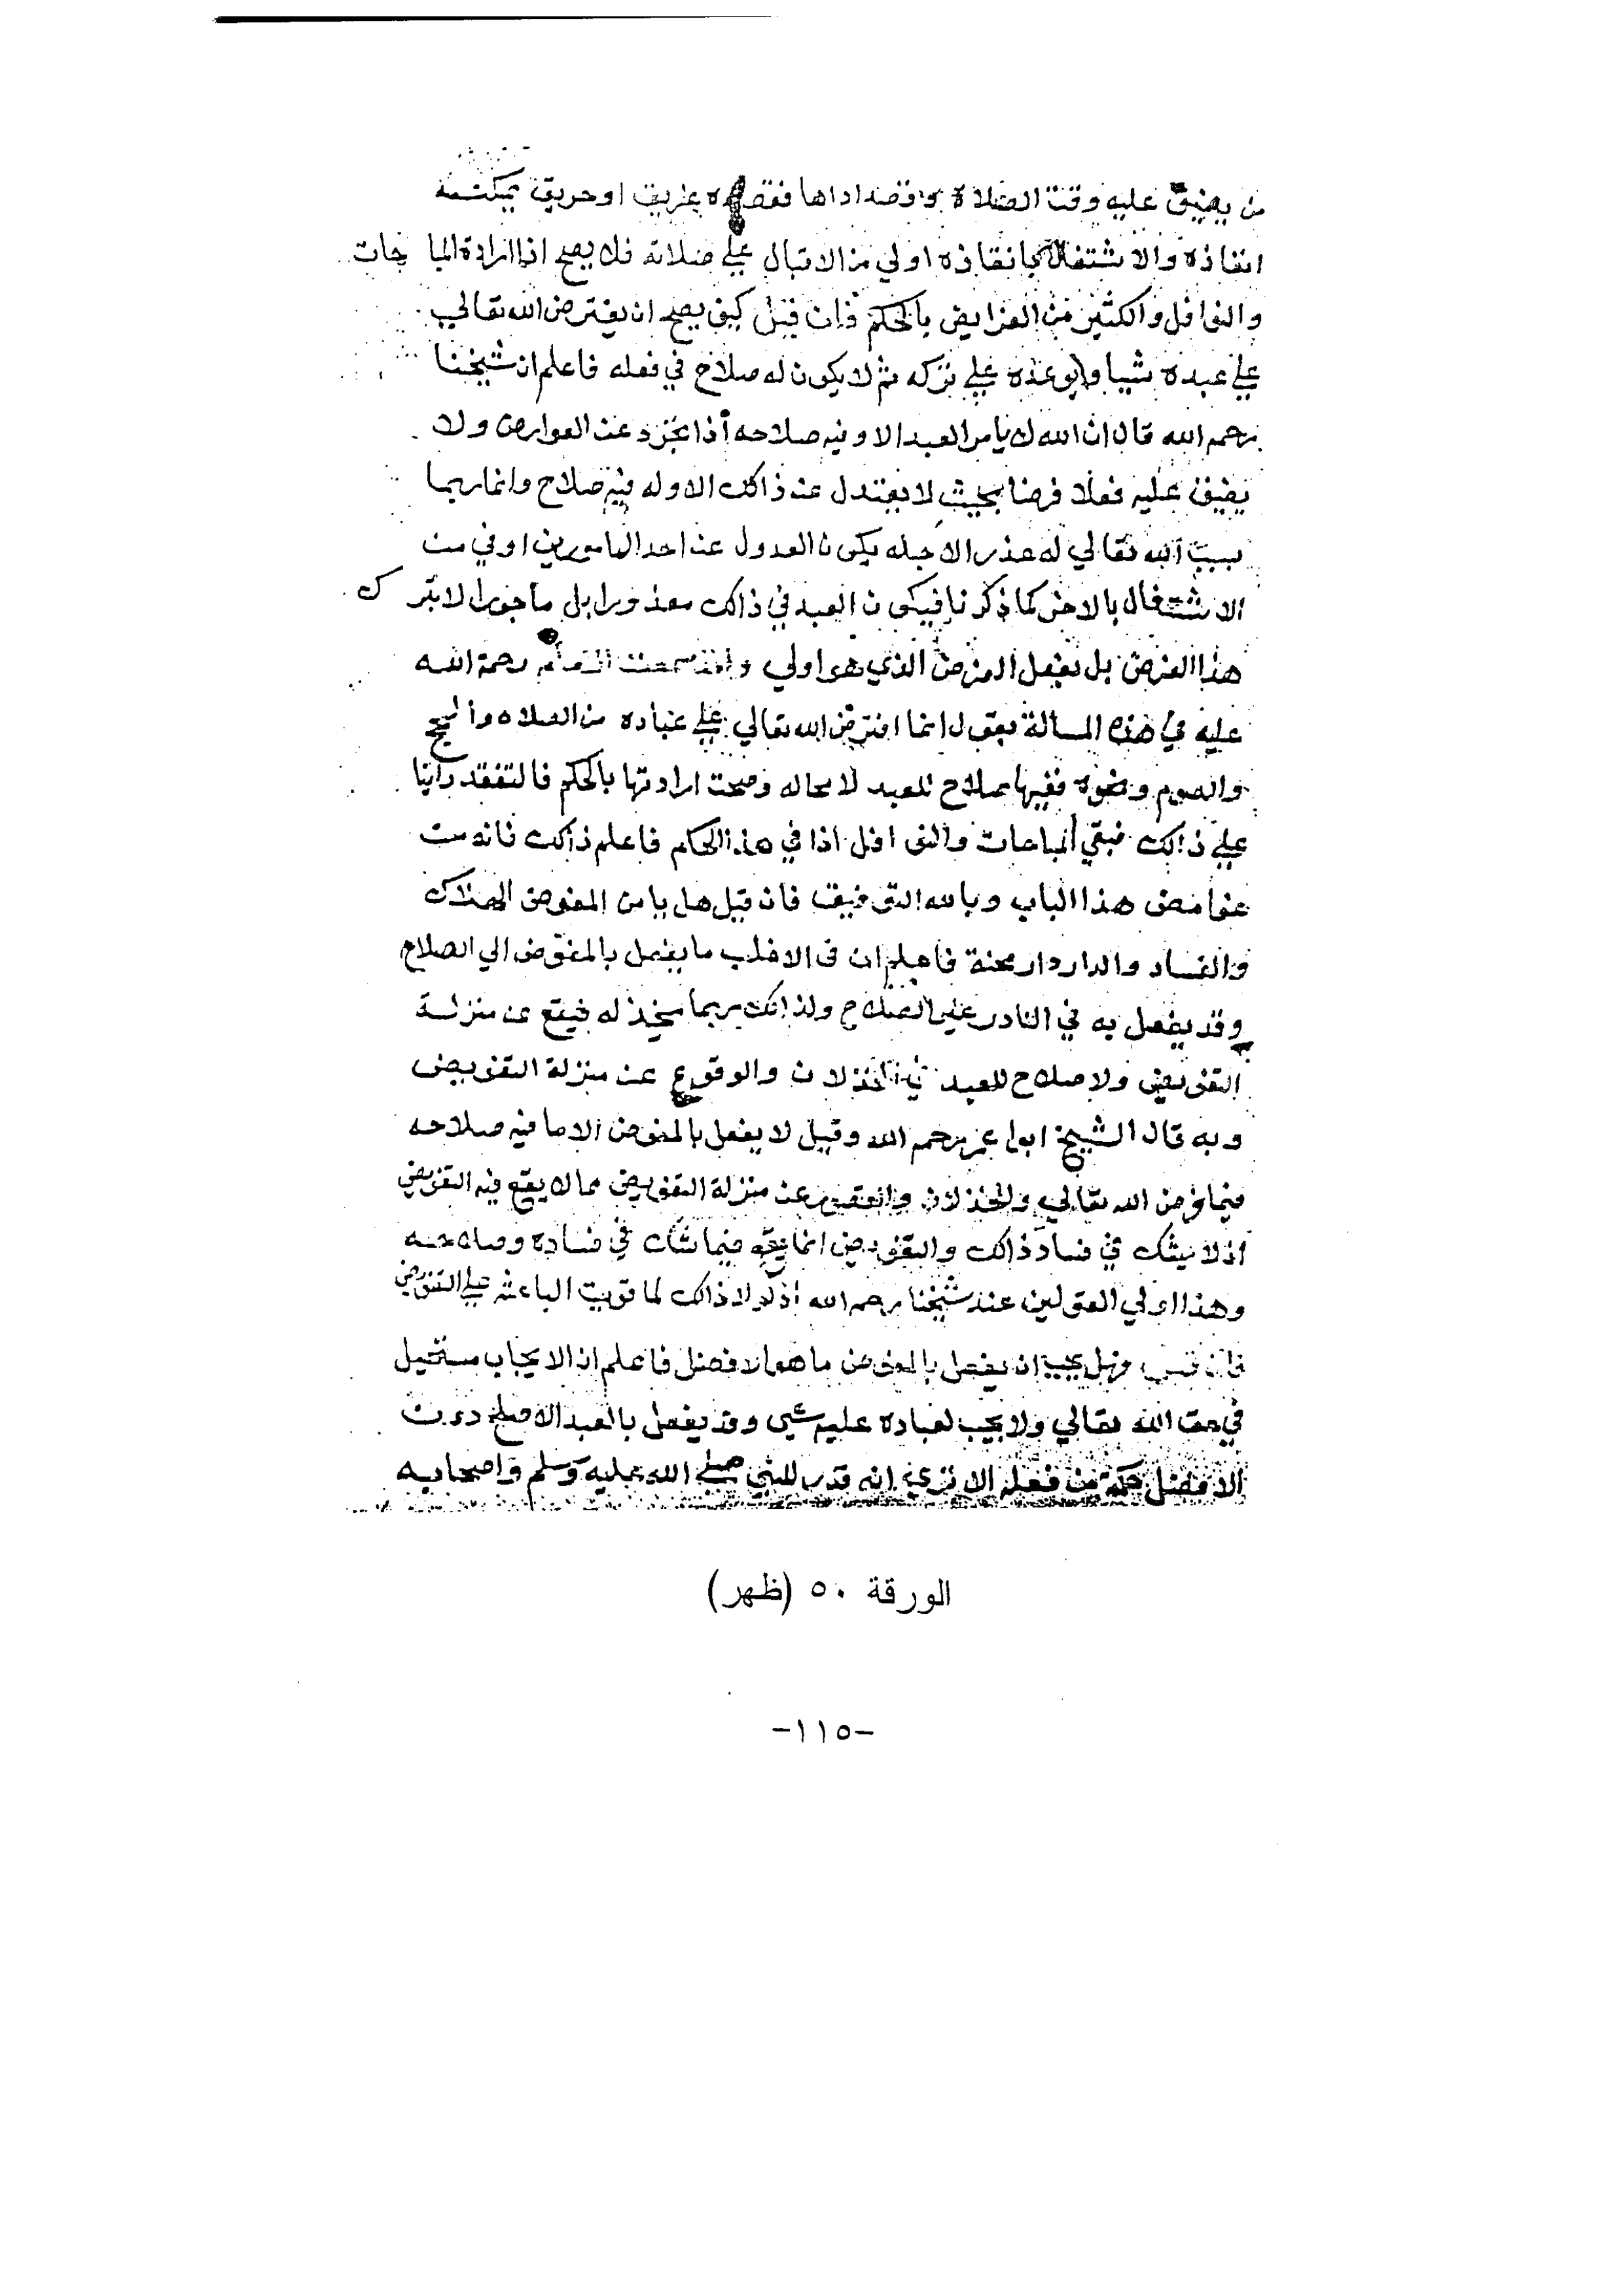 من يضيق عليه وقت الصلاة وقصد اداها فقصده غريق او حريق يمكنه
انقاذه والاشتغال بانقاذه اولي من الاقبال علي صلاته فلا يصح اذا ارادة المباحات
والنوافل والكثير من الفرايض بالحكم فان قيل كيف يصح ان يفترض الله تعالي
علي عبده شيا ويوعده علي تركه ثم لا يكون له صلاح في فعله فاعلم ان شيخنا
رحمه الله قال ان الله لا يامر العبد الا وفيه صلاحه اذا تجرد عن العوارض ولا
يضيق عليه فعلا فرضا بحيث لا يعتدل عن ذالك الا وله فيه صلاح وانما ربما
يسبب الله تعالي له عذرا لاجله يكون العدول عن احد المامورين اوفي من
الاشتغال بالاخر كما ذكرنا فيكون العبد في ذالك معذورا بل ماجورا لا بترك
هذا الفرض بل بفعل الفرض الذي هو اولي ولقد سمعت رحمة الله
عليه في هذه المسالة يقول انما افترض الله تعالي علي عباده من الصلاه والحج
والصوم ونحوه ففيها صلاح للعبد لا محاله وصحت ارادتها بالحكم فالتفقد راينا
علي ذالك فبقي المباحات والنوافل اذا في هذا الحكم فاعلم ذالك فانه من
غوامض هذا الباب وبالله التوفيق فان قيل هل يامن المفوض الهلاك
والفساد والدار دار محنة فاعلم ان في الاغلب ما يفعل بالمفوض الي الصلاح
وقد يفعل به في النادر غير الصلاح ولذالك ربما يخذله فيقع عن منزلة
التفويض ولا صلاح للعبد في الخذلان والوقوع عن منزلة التفويض
وبه قال الشيخ ابوا عمر رحمه الله وقيل لا يفعل بالمفوض الا ما فيه صلاحه
فيما فوض الله تعالي والخذلان والقصور عن منزلة التفويض مما لا يقع فيه التفويض
اذ لا يشك في فساد ذالك والتفويض انما يقع فيما شك في فساده وصلاحه
وهذا اولي القولين عند شيخنا رحمه الله اذ لولا ذالك لما قويت الباعثه علي التفويض
فان قيل فهل يجب ان يفعل بالمفوض ما هو الافضل فاعلم ان الايجاب مستحيل
في حق الله تعالي ولا يجب لعباده عليه شي وقد يفعل بالعبد الاصلح دون
الافضل حكمة من فعله الا تري انه قدر للنبي صلي الله عليه وسلم واصحابه
الورقة ٥٠ (ظهر)
-١١٥-